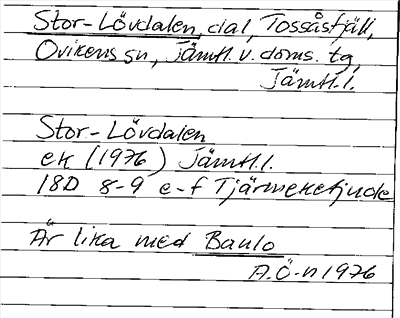 Stor-Lövdalen, dal, Tossåsfjäll,
Ovikens sn, Jämtl. v. doms. tg,
Jämtl. l.
Stor-Lövdalen
ek (1976) Jämtl. l.
18D 8-9 e-f Tjärmekefjude
Är lika med Baulo
A.Ö-n 1976